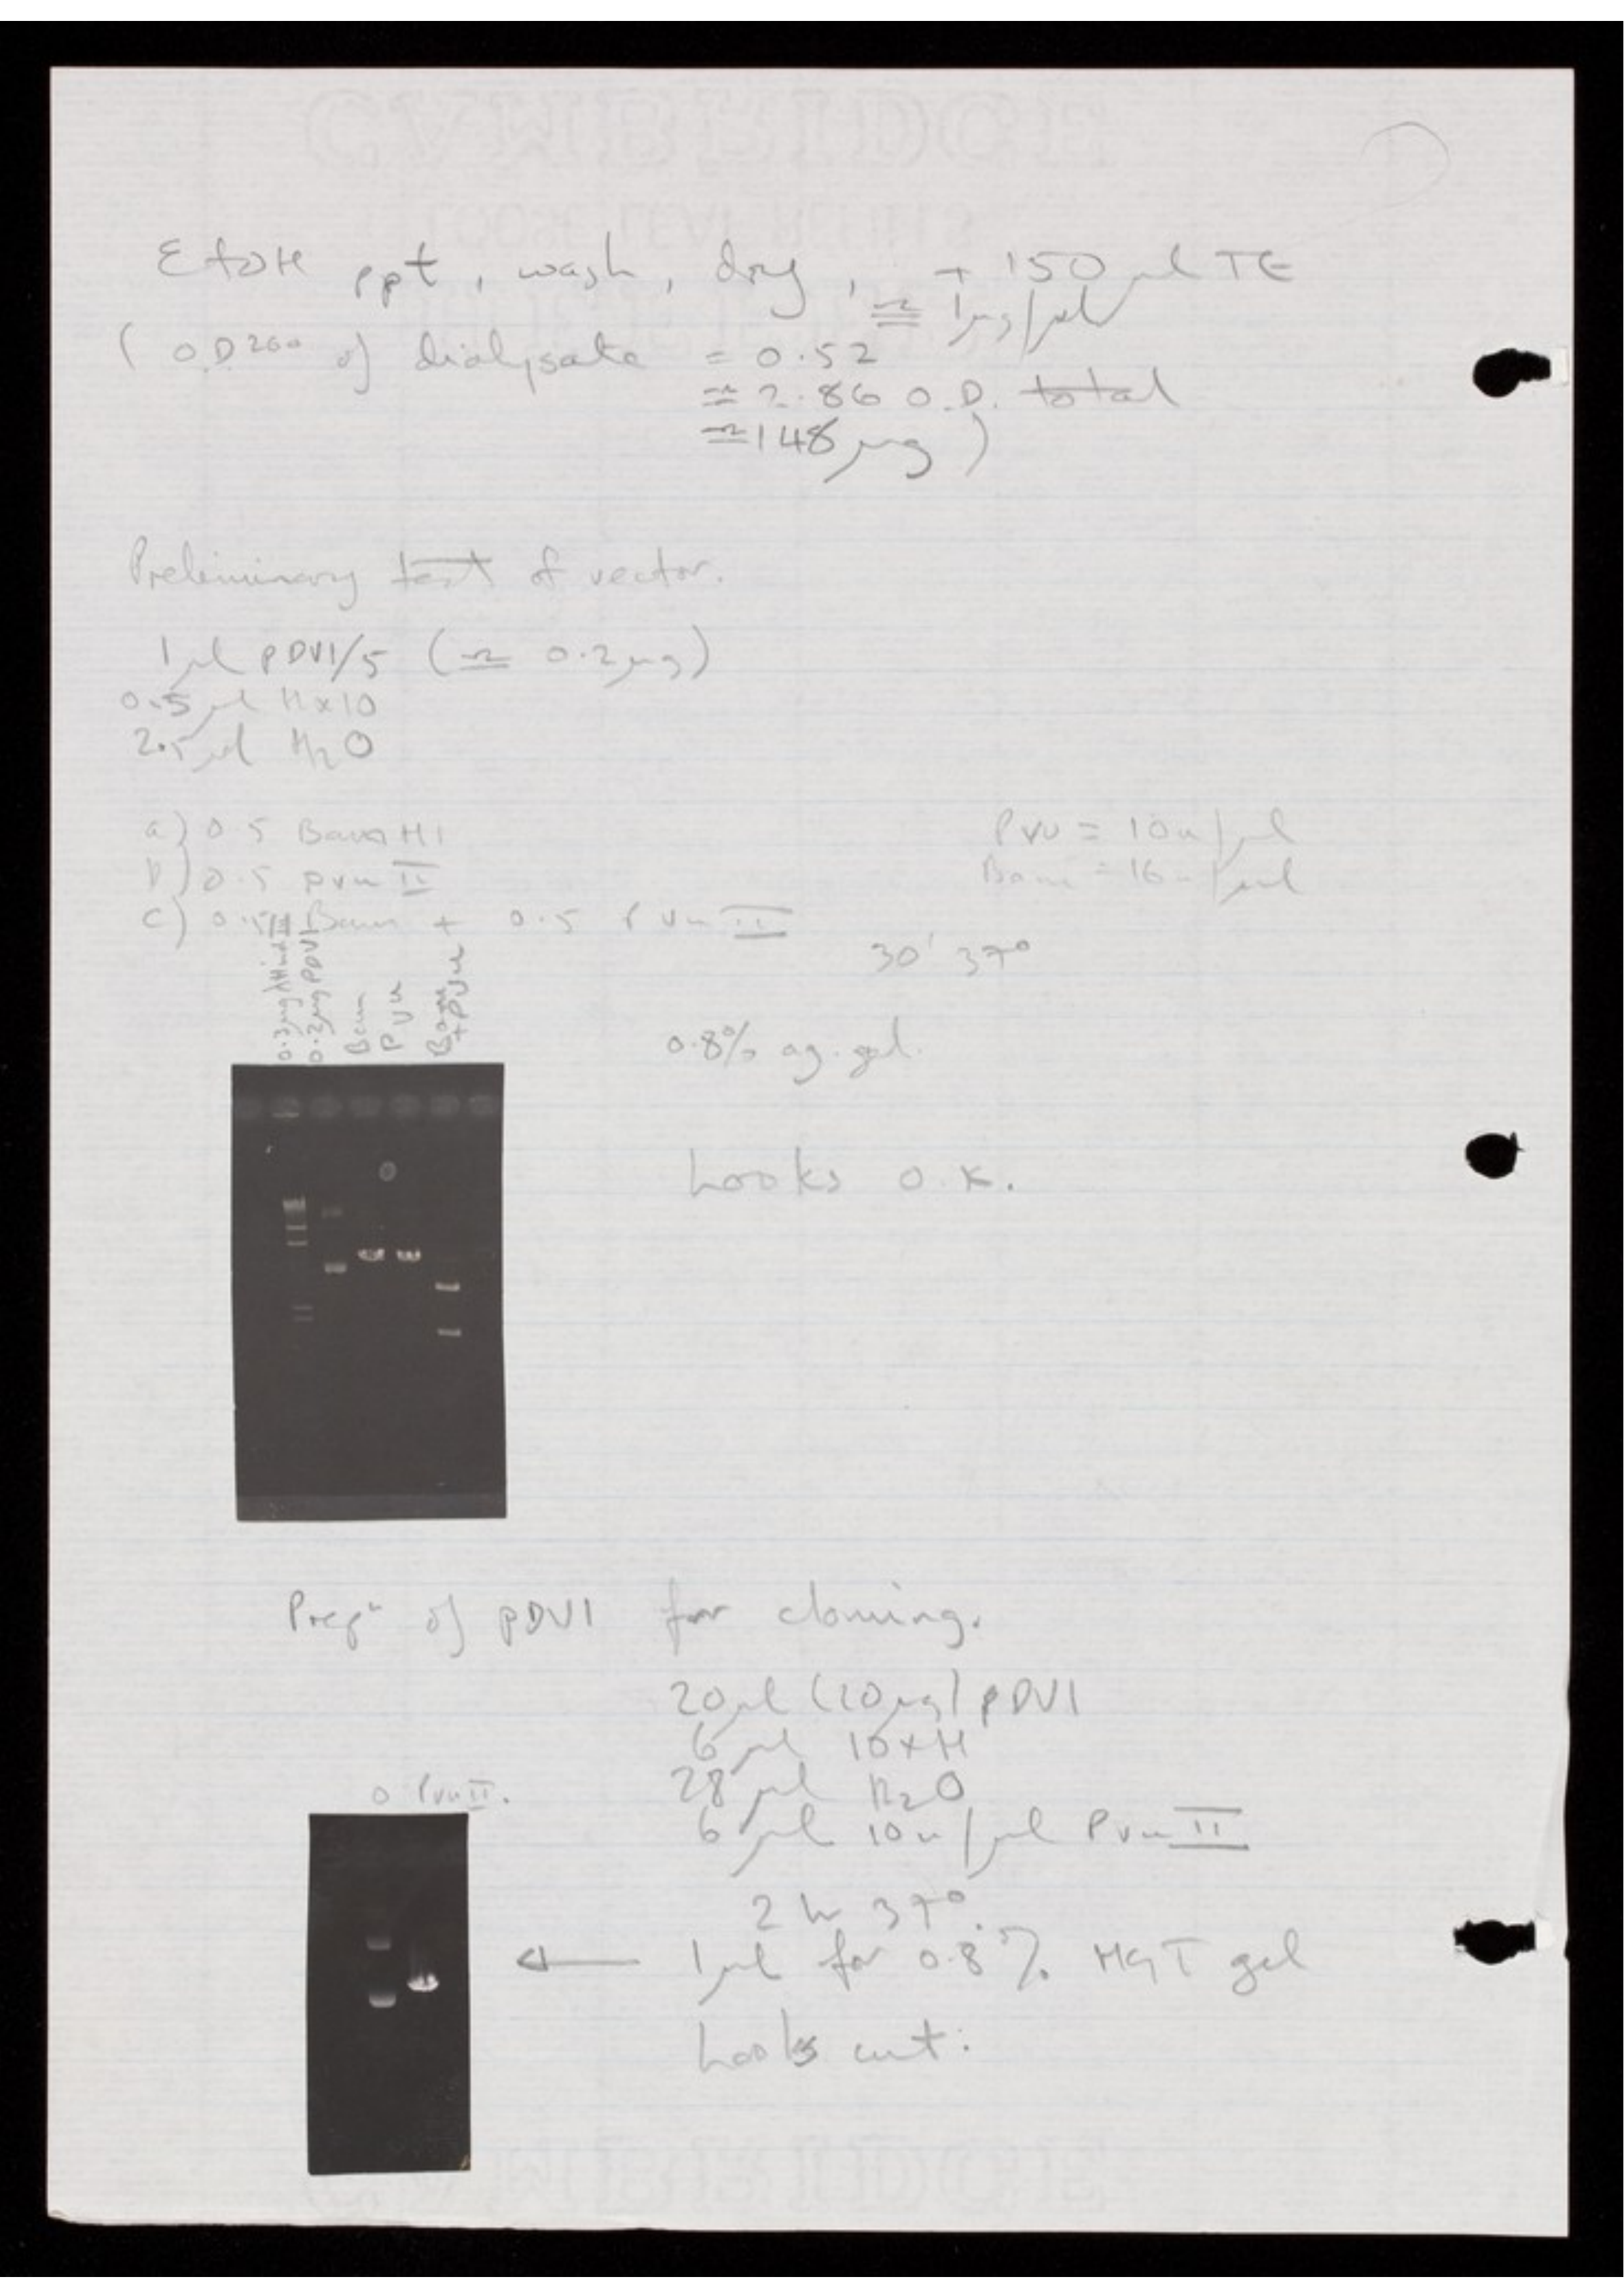 EtOH ppt, wash, dry, + 150 µl TE
≃ 1µg/µl
( O.D²⁶⁰ of dialysate = 0.52
≃ 2.86 O.D. total
≃ 148 µg )
Preliminary test of vector.
1 µl pDV1/5 (≃ 0.2µg)
0.5 µl H x 10
2.5 µl H₂O
a) 0.5 Bam H1
b) 0.5 pvu II
c) 0.5 Bam + 0.5 Pvu II
Pvu = 10u/µl
Bam = 16u/µl
30' 37°
0.3µg λHind III
0.2µg PDV1
Bam
Pvu
Bam
+ Pvu
0.8% ag. gel.
Looks O.K.
Prepⁿ of pDV1 for cloning.
20 µl (20µg) pDV1
6 µl 10xH
28 µl H₂O
6 µl 10u/µl Pvu II
0 Pvu II.
2 hr 37°.
1 µl for 0.8% MGT gel
Looks cut.